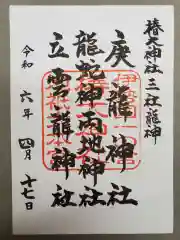 椿大神社三社龍神
庚龍神社
龍蛇神雨地神
立雲龍神社
令和六年四月十七日